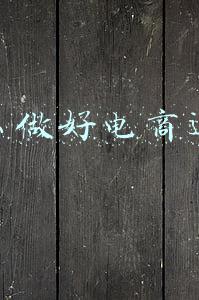 做好电商